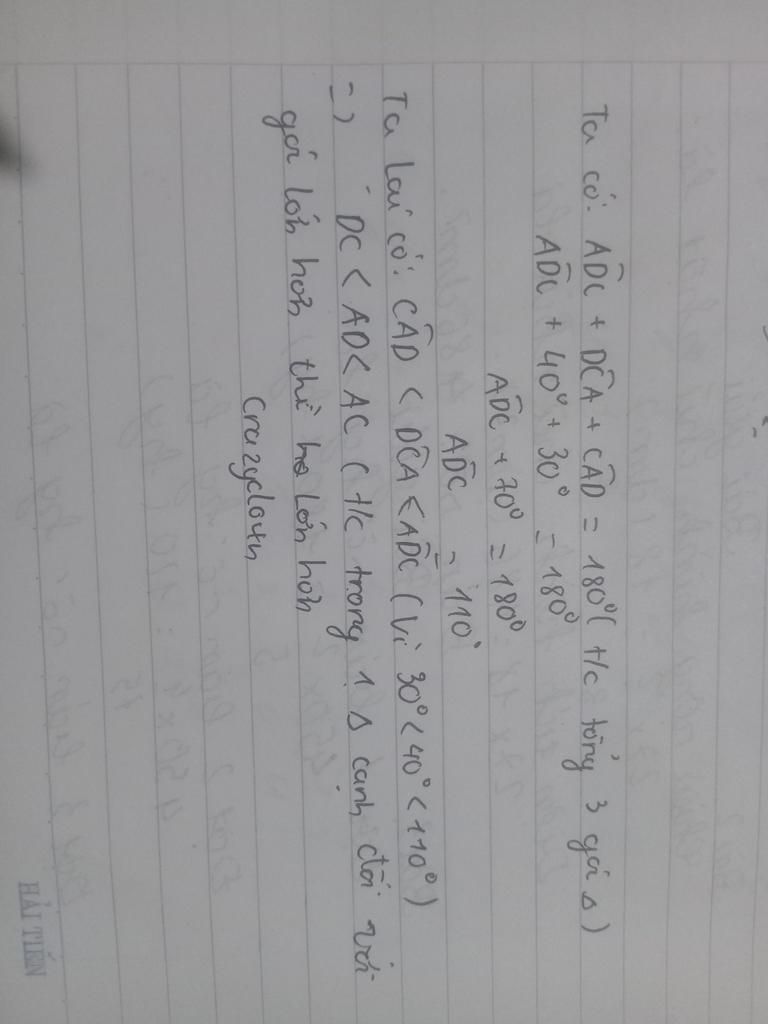 Ta có: ADĈ + DCÂ + CÂD = 180° ( t/c tổng 3 gó Δ )
ADĈ + 40° + 30° = 180°
ADĈ + 70° = 180°
ADĈ = 110°
Ta lại có: CÂD < DCÂ < ADĈ ( Vì 30° < 40° < 110° )
=> DC < AD < AC ( t/c trong 1 Δ cạnh đối với
gó lớn hơn thì lớn hơn
Crazyclown
HẢI TIẾN